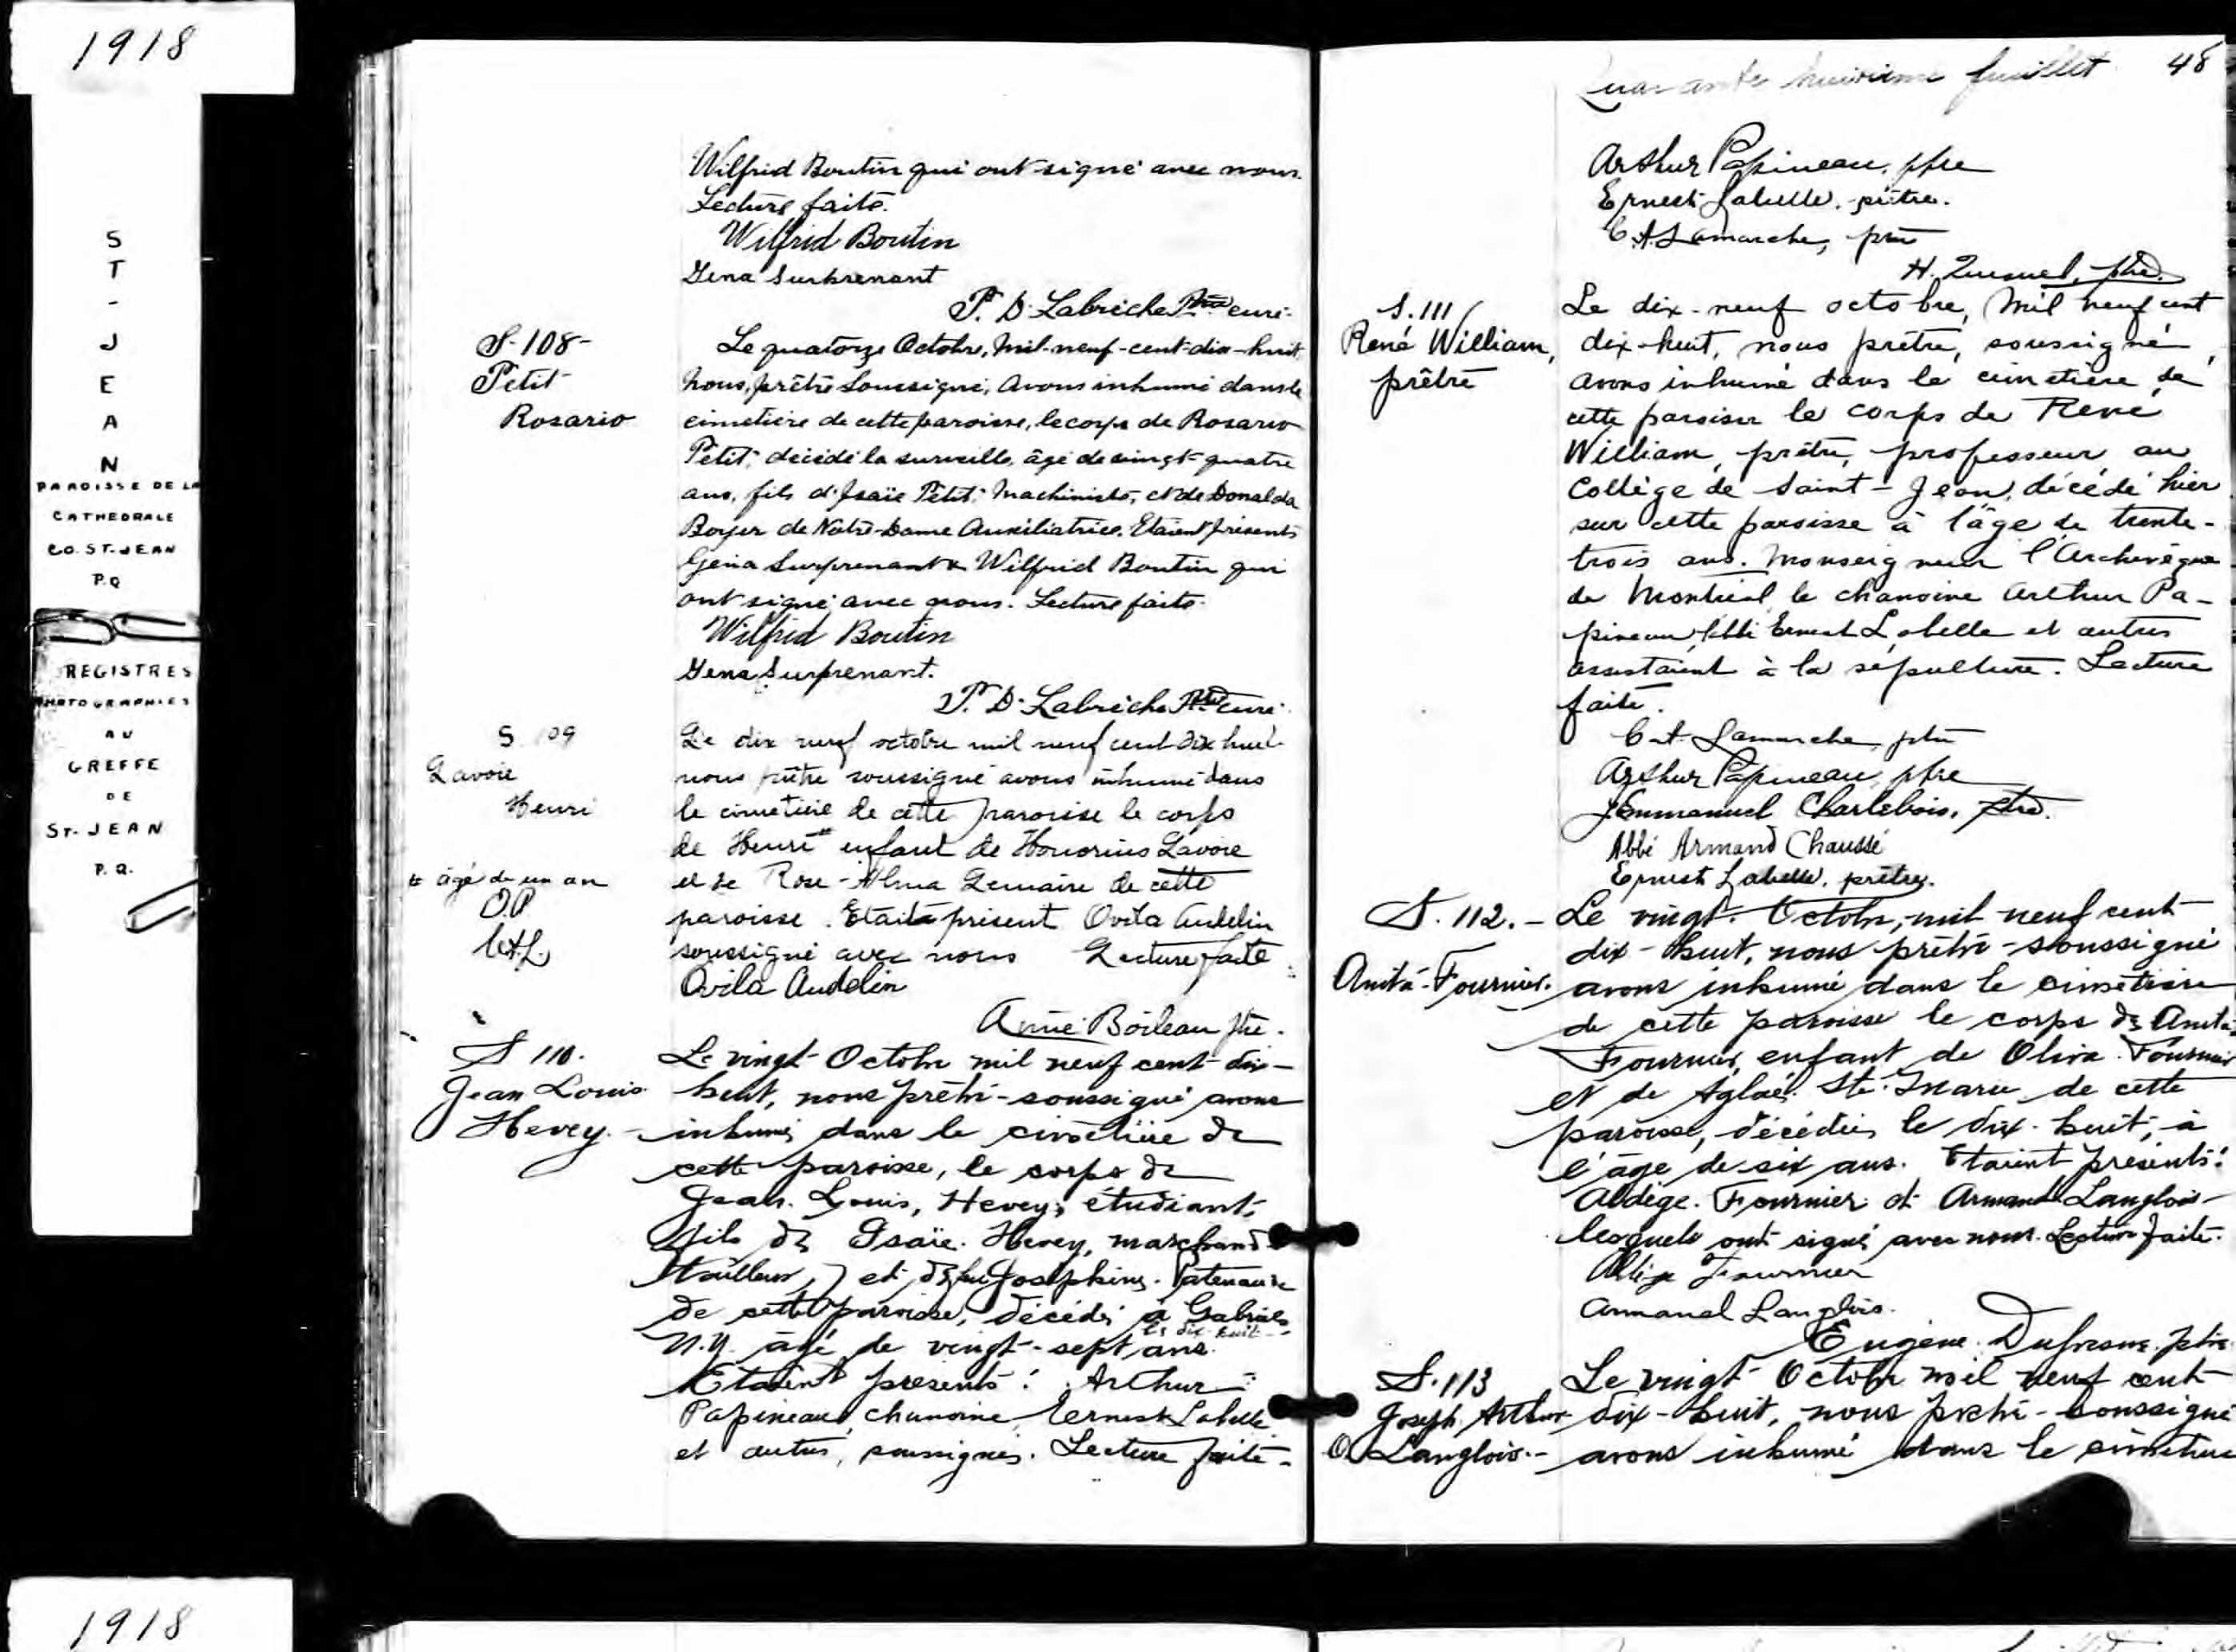 1918
S
T
-
J
E
A
N
PAROISSE DE LA
CATHEDRALE
CO. ST-JEAN
P.Q
REGISTRES
PHOTOGRAPHIES
AU
GREFFE
DE
ST-JEAN
P.Q.
1918
Wilfrid Boutin qui ont signé avec nous.
Lecture faite.
Wilfrid Boutin
Gena Surprenant
P. D. Labrèche Ptre curé
S-108-
Petit
Rosario
Le quatorze Octobre, Mil-neuf-cent-dix-huit
Nous, prêtre Soussigné, Avons inhumé dans le
cimetière de cette paroisse, le corps de Rosario
Petit, décédé la surveille, âgé de vingt-quatre
ans, fils d'Isaïe Petit, Machiniste, et de Donalda
Boyer de Notre-Dame Auxiliatrice. Etaient présents
Géna Surprenant & Wilfrid Boutin qui
ont signé avec nous. Lecture faite.
Wilfrid Boutin
Gena Surprenant.
P. D. Labrèche Ptre curé
S 109
Lavoie
Henri
* âgé de un an
O.A
C.A.L.
Le dix neuf octobre mil neuf cent dix huit
nous prêtre soussigné avons inhumé dans
le cimetière de cette paroisse le corps
de Henri * enfant de Honorius Lavoie
et de Rose-Alma Lemaire de cette
paroisse. Etait présent Ovila Audelin
soussigné avec nous Lecture faite
Ovila Audelin
Aimé Boileau ptre.
S 110.
Jean Louis
Hevey.
Le vingt Octobre mil neuf cent dix-
huit, nous prêtre-soussigné avons
inhumé dans le cimetière de
cette paroisse, le corps de
Jean. Louis, Hevey, étudiant,
fils de Isaïe. Hevey, marchand
tailleur, et de feu Josephine. Patenaude
de cette paroisse, décédé à Gabriels
le dix huit
N.Y. âgé de vingt-sept ans.
Etaient présents: Arthur
Papineau, chanoine, Ernest Labelle
et autres, soussignés. Lecture faite-
Quarante huitième feuillet 48
Arthur Papineau, ptre
Ernest Labelle, prêtre.
C.A. Lamarche, ptre
H. Quesnel, ptre.
S. 111
René William,
prêtre
Le dix-neuf octobre, Mil neuf cent
dix-huit, nous prêtre, soussigné,
avons inhumé dans le cimetière de
cette paroisse le corps de René
William, prêtre, professeur au
Collège de Saint-Jean, décédé hier
sur cette paroisse à l'âge de trente-
trois ans. Monseigneur l'Archevêque
de Montréal, le chanoine Arthur Pa-
pineau, l'abbé Ernest Labelle et autres
assistaient à la sépulture. Lecture
faite.
C.A. Lamarche, ptre
Arthur Papineau, ptre
J Emmanuel Charlebois, ptre.
Abbé Armand Chaussé
Ernest Labelle, prêtre.
S. 112.-
Anita-Fournier.
Le vingt. Octobre, mil neuf cent
dix-huit, nous prêtre-soussigné
avons inhumé dans le cimetière
de cette paroisse le corps de Anita
Fournier, enfant de Oliva. Fournier
et de Aglaé. Ste. Marie de cette
paroisse, décédée le dix-huit, à
l'âge de six ans. Etaient présents:
Aldège. Fournier et Armand Langlois
lesquels ont signé avec nous. Lecture faite.
Fournier
Armand Langlois.
Eugène. Dufresne. ptre.
S. 113
Joseph Arthur
O. Langlois.-
Le vingt Octobre mil neuf cent
dix-huit, nous prêtre-soussigné
avons inhumé dans le cimetière